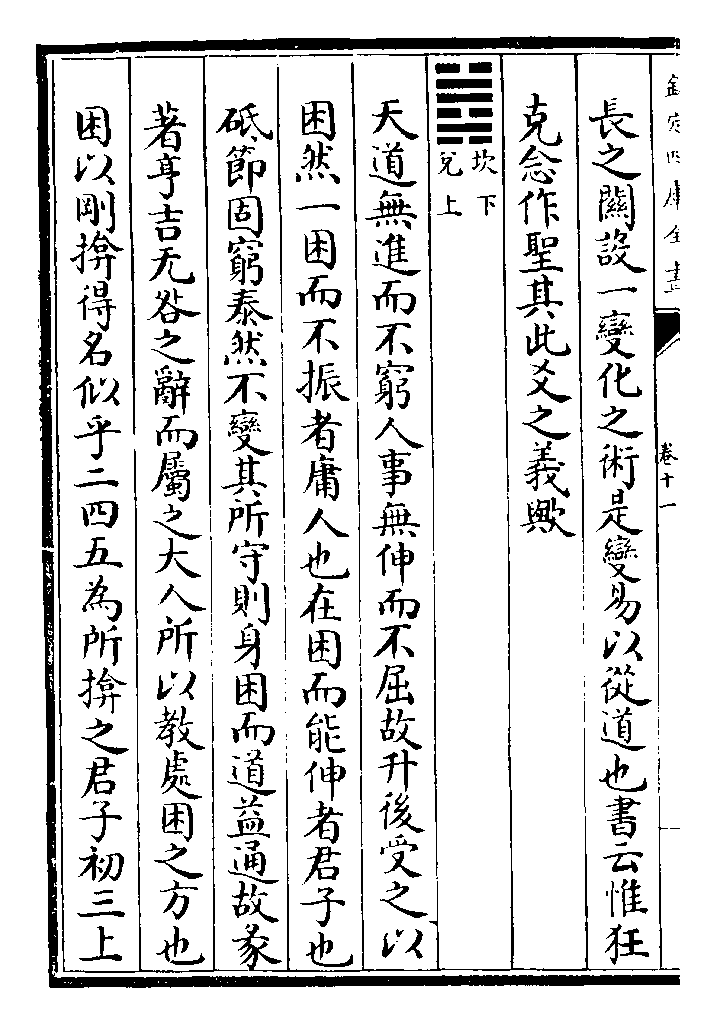 欽定四庫全書
卷十一
長之關設一變化之術是變易以從道也書云惟狂
克念作聖其此爻之義歟
坎下
兌上
天道無進而不窮人事無伸而不屈故升後受之以
困然一困而不振者庸人也在困而能伸者君子也
砥節固窮泰然不變其所守則身困而道益通故彖
著亨吉无咎之辭而屬之大人所以教處困之方也
困以剛揜得名似乎二四五為所揜之君子初三上